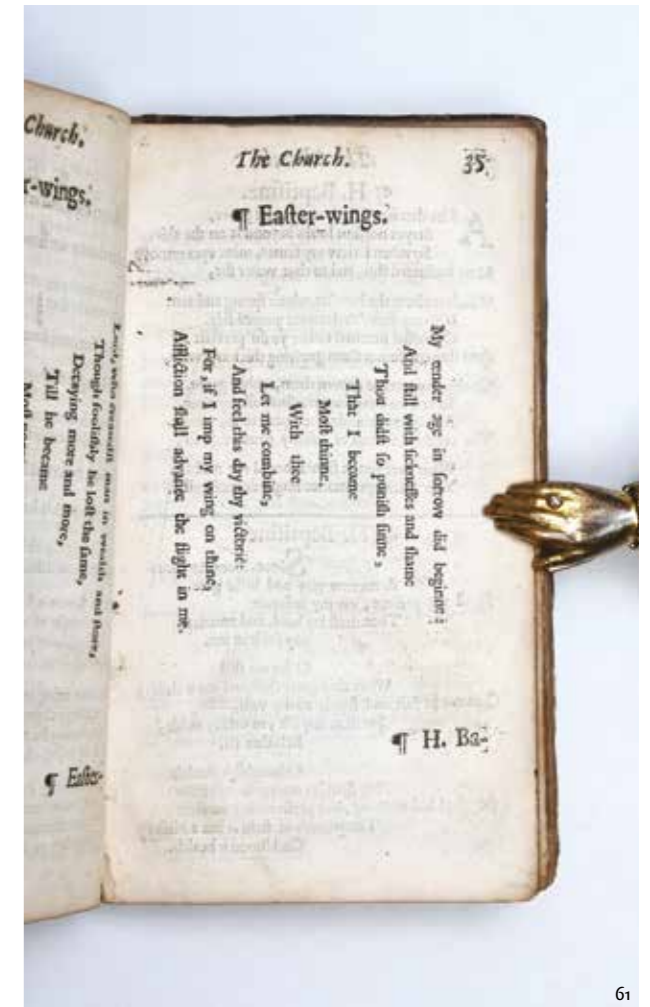 Church.
r-wings.
Lord, who createdſt man in wealth and ſtore,
Though fooliſhly he loſt the ſame,
Decaying more and more,
Till he became
Moſt
¶ Eaſter-
The Church. 35.
¶ Eaſter-wings.
My tender age in ſorrow did beginne:
And ſtill with ſickneſſes and ſhame
Thou didſt ſo puniſh ſinne,
That I became
Moſt thinne.
With thee
Let me combine,
And feel this day thy victorie:
For, if I imp my wing on thine,
Affliction ſhall advance the flight in me.
¶ H. Ba-
61